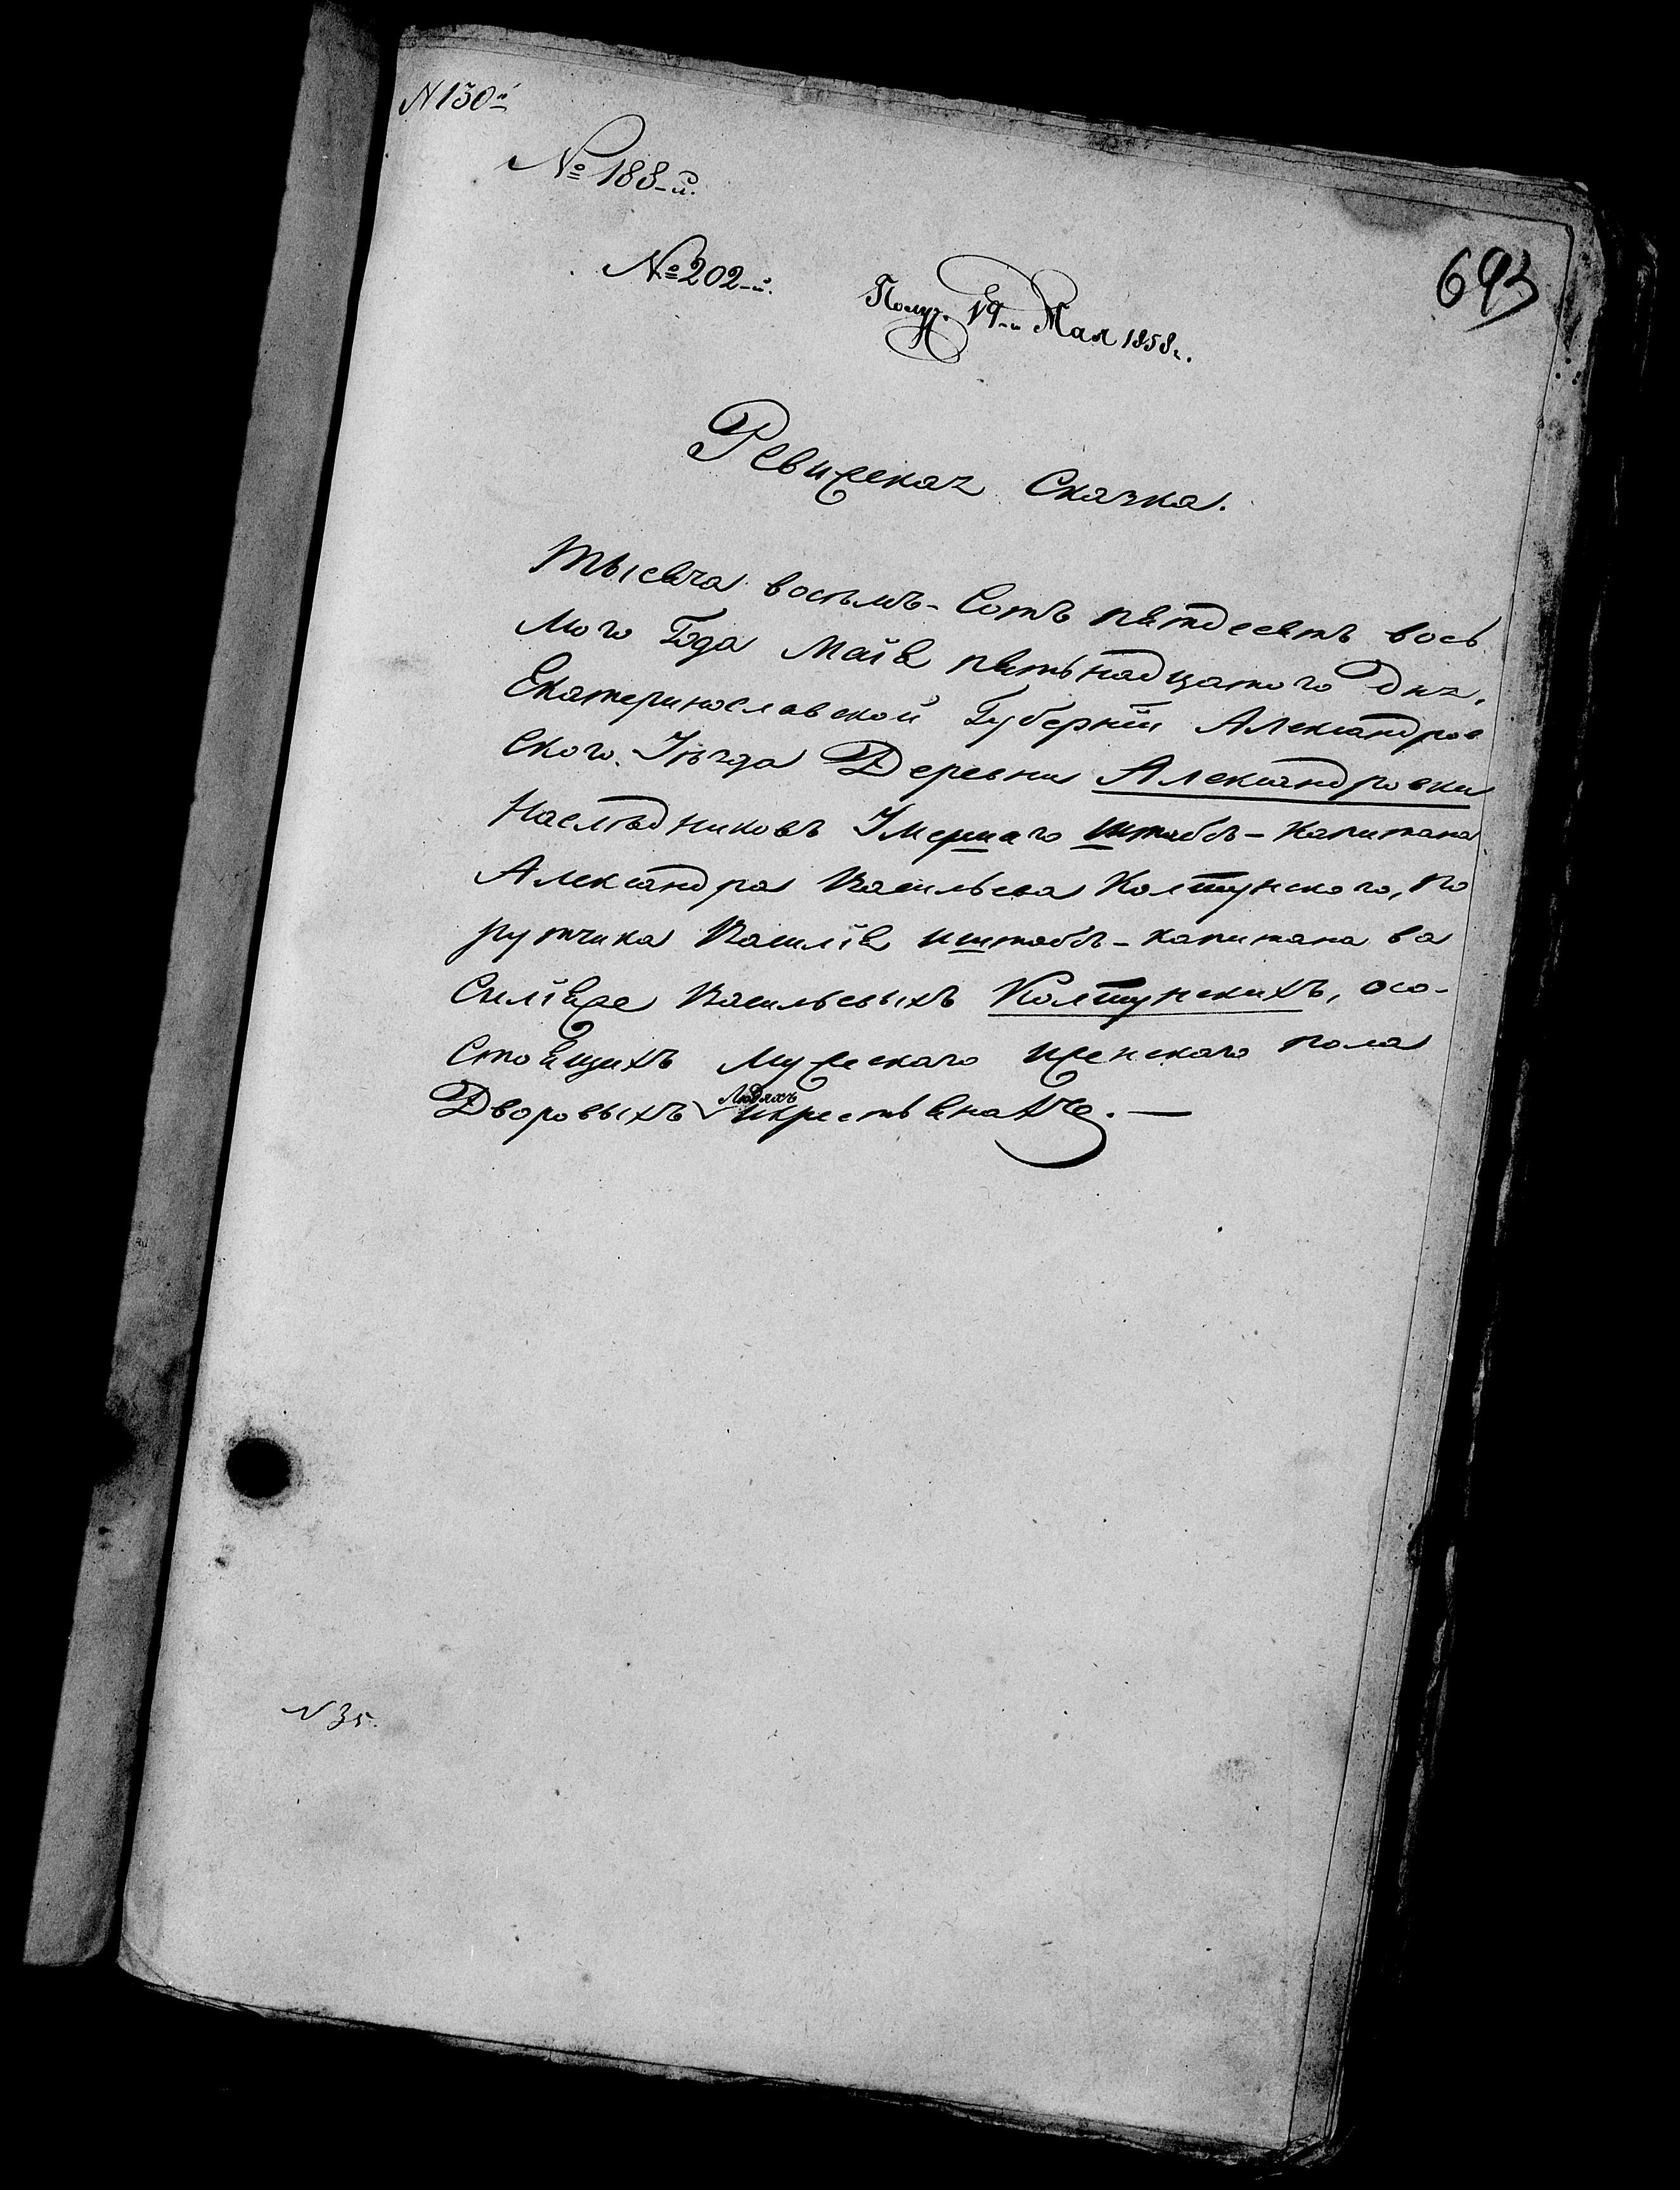 N 130й
№ 188-й.
№ 202-й.
693
Получ. 19-го Мая 1858 г.
Ревижская Сказка.
Тысяча восемь-Сотъ пятдесятъ вось
мого Года Маія пятьнадцатого Дня,
Екатеринославской Губерніи Александров
ского Уѣзда Деревни Александровки
Наслѣдниковъ Умершаго штабсъ-капитана
Александра Васильева Колтунского, По
рутчика Василія иштабсъ-капитана ва
Силія же Васильевыхъ Колтунскихъ, осо-
Стоящихъ Мужеского иженского пола
Дворовыхъ Людяхъ икрестьянахъ. —
N 35.